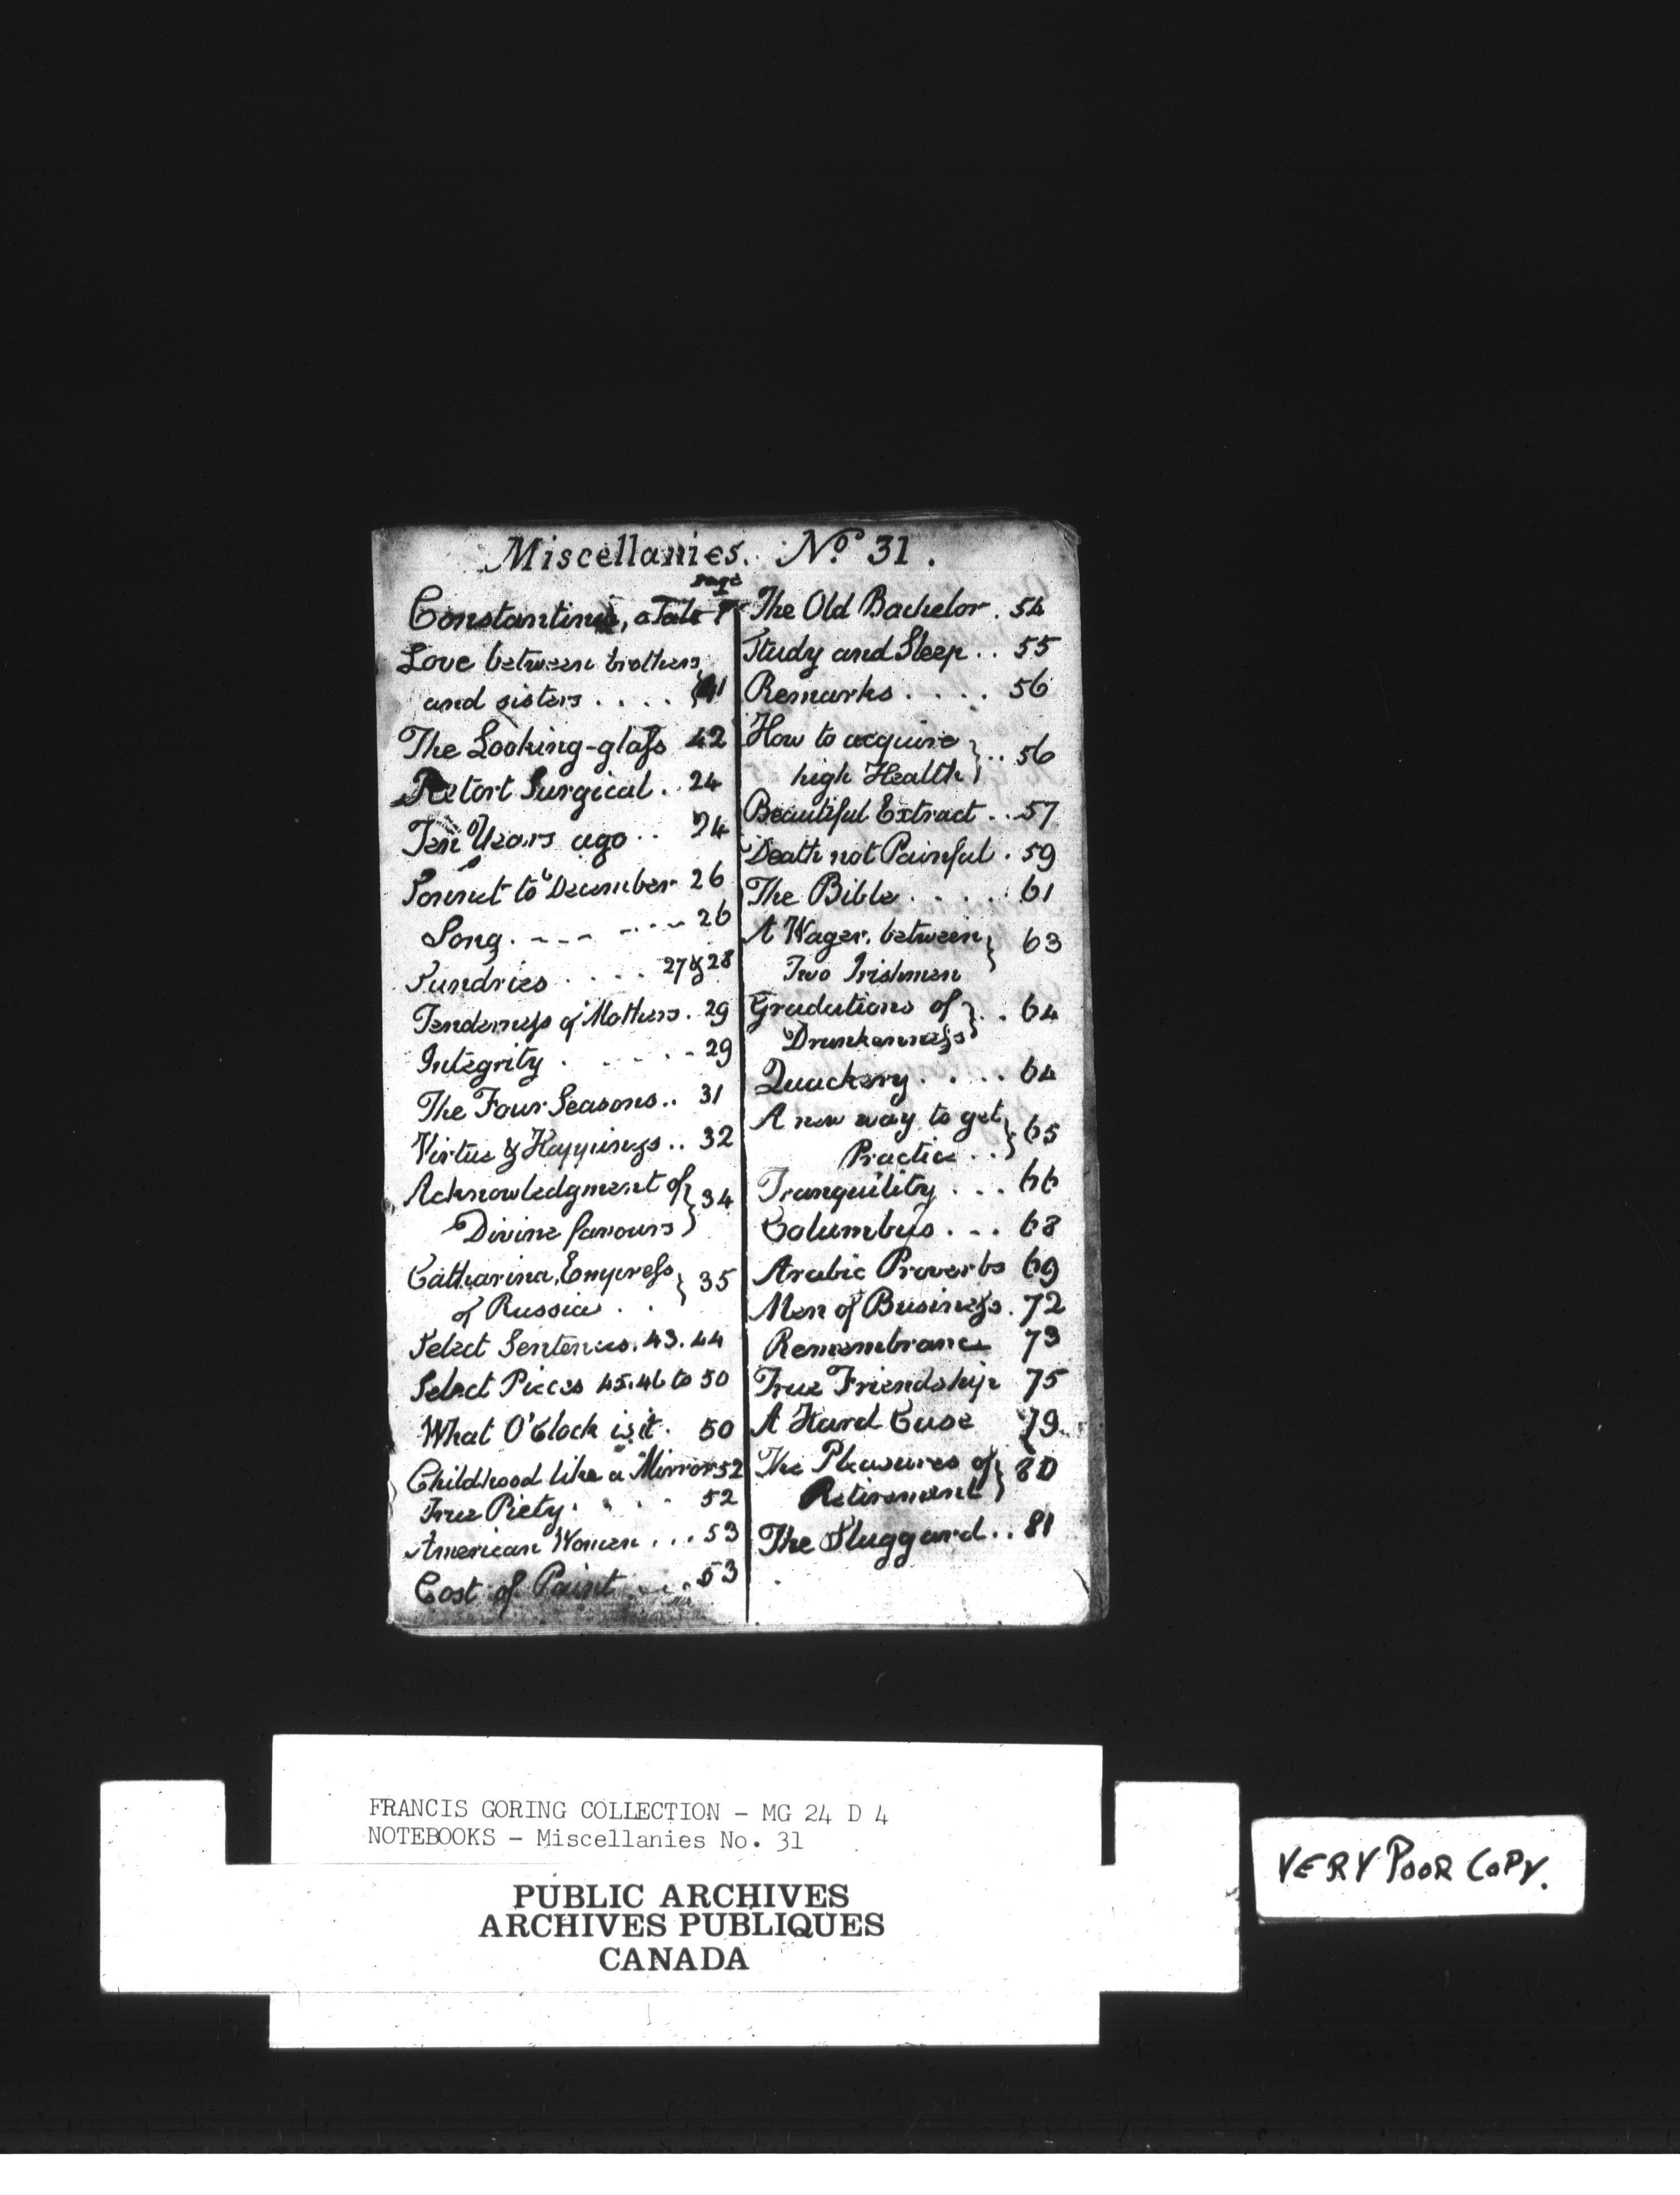 Miscellanies. No 31.
page
Constantine, a Tale
Love between brothers
and sisters .... 41
The Looking-glass 42
Retort Surgical .. 24
Ten Years ago .. 24
Sonnet to December 26
Song. - - - - - - - 26
Sundries .... 27 & 28
Tenderness of Mothers . 29
Integrity ..... 29
The Four Seasons .. 31
Virtue & Happiness .. 32
Acknowledgment of } 34
Divine favours
Catharina, Empress } 35
of Russia . .
Select Sentences. 43. 44
Select Pieces 45. 46 to 50
What O'Clock is it. 50
Childhood like a Mirror 52
True Piety . . . . 52
American Women ... 53
Cost of Paint .... 53
The Old Bachelor . 54
Study and Sleep .. 55
Remarks .... 56
How to acquire } .. 56
high Health
Beautiful Extract .. 57
Death not Painful . 59
The Bible ..... 61
A Wager, between } 63
Two Irishmen
Gradations of } .. 64
Drunkenness
Quackery .... 64
A new way to get } 65
Practice ..
Tranquility ... 66
Columbus ... 68
Arabic Proverbs 69
Men of Business . 72
Remembrance 73
True Friendship 75
A Hard Case 79
The Pleasures of } 80
Retirement
The Sluggard .. 81
FRANCIS GORING COLLECTION - MG 24 D 4
NOTEBOOKS - Miscellanies No. 31
PUBLIC ARCHIVES
ARCHIVES PUBLIQUES
CANADA
VERY POOR COPY.